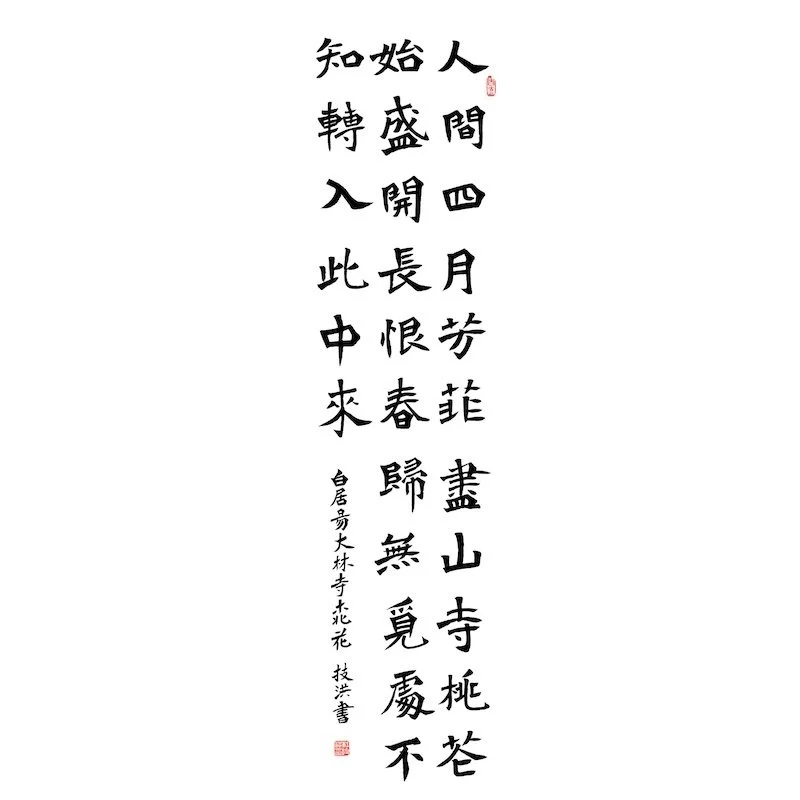 人間四月芳菲盡山寺桃花
始盛開長恨春歸無覓處不
知轉入此中來
白居易大林寺桃花 技洪書